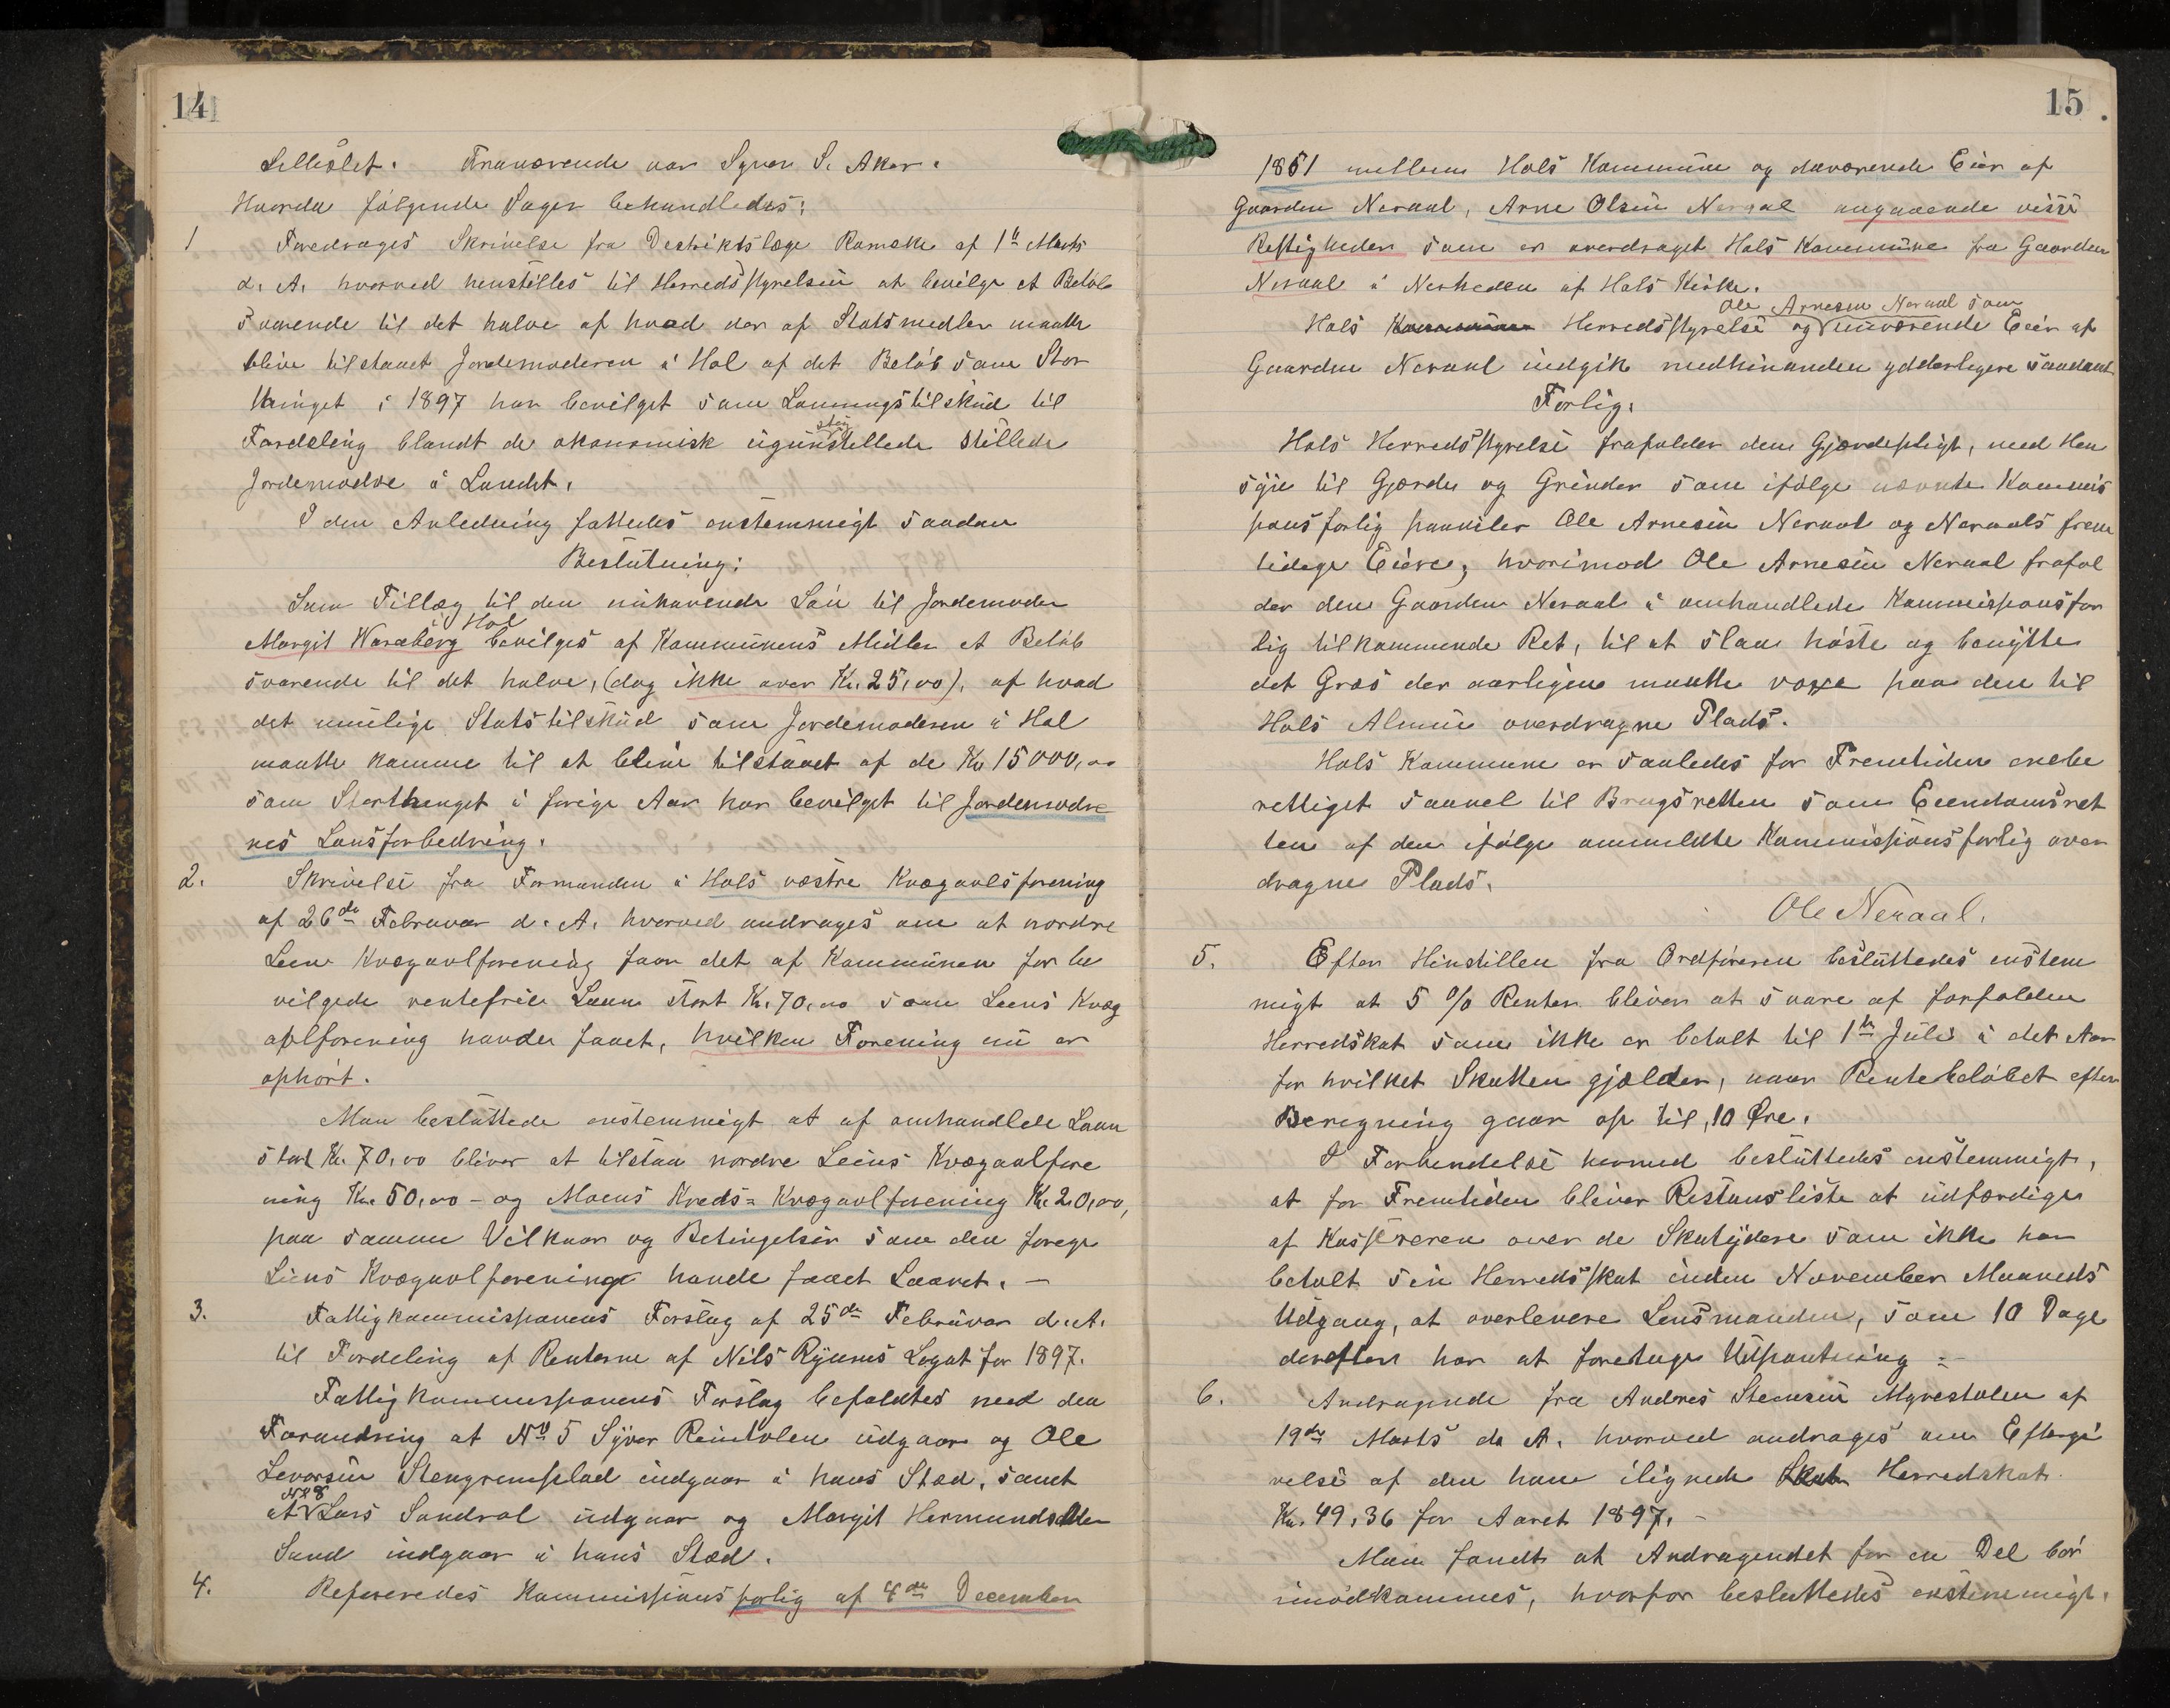 14
Lilleslet. Fraværende var Syver S. Aker.
Hvorda følgende Sager behandledes:
1 Foredroges Skrivelse fra Destriktslæge Ramske af 1ste Marts
d. A. hvorved henstilles til Herredsstyrelsen at bevilge et Beløb
svarende til det halve af hvad der af Statsmedler maatte
blive tilstaaet Jordemoderen i Hol af det Beløb som Stor
thinget i 1897 har bevilget som Lønningstilskud til
Fordeling blandt de økonomisk ugunstellede stillede
Jordemødre i Landet.
I den Anledning fattedes enstemmigt saadan
Beslutning:
Som Tillæg til den nuhavende Løn til Jordemoder
Margit Waraberg Hol bevilges af Kommunens Midler et Beløb
svarende til det halve, (dog ikke over Kr. 25,00), af hvad
det mulige Statstilskud som Jordemoderen i Hol
maatte komme til at blive tilstaaet af de Kr 15000,00
som Storthinget i forige Aar har bevilget til Jordemødre
nes Lønsforbedring.
2. Skrivelse fra Formanden i Hols vestre Kvægavlsforening
af 26de Februar d. A. hvorved andrages om at nordre
Leene Kvægavlforening faar det af Kommunen for be
vilgede rentefrie Laan stort Kr. 70,00 som Leens Kvæg
aplforening havde faaet, hvilken Forening nu er
ophørt.
Man besluttede enstemmigt at af omhandlede Laan
stort Kr. 70,00 bliver at tilstaa nordre Leens Kvægaalfore
ning Kr. 50,00 – og Moens Kreds= Kvægavlforening Kr. 20,00,
paa samme Vilkaar og Betingelser som den forege
Liens Kvægavlforening havde faaet Laanet. —
3. Fattigkommissionens Forslag af 25de Februar d. A.
til Fordeling af Renterne af Nils Ryums Legat for 1897.
Fattigkommissionens Forslag befaldtes med den
Forandring at No 5 Syver Reintolen udgaar og Ole
Levorsen Stengrimsplad indgaar i hans Sted, samt
at No 8 Lars Sundvol udgaar og Margit Hermundsdtter
Sund indgaar i hans Sted.
4. Refereredes Kommissionsforlig af 4de December
15
1851 mellem Hols Kommune og daværende Eier af
Gaarden Neraal, Arne Olsen Neraal angaaende visse
Rettigheder som er overdraget Hols Kommune fra Gaarden
Neraal i Nerheden af Hols Kirke.
Ole Arnesen Neraal som
Hols Kommune Herredsstyrelse og nuværende Eier af
Gaarden Neraal indgik medhinanden ydderligere saadant
Forlig:
Hols Herredsstyrelse frafalder den Gjærdepligt, med Hen
syn til Gjærder og Grinder som ifølge nævnte Kommis
sions forlig paaviler Ole Arnesen Neraal og Neraals frem
tidige Eiere, hvorimod Ole Arnesen Neraal frafal
der den Gaarden Neraal i omhandlede Kommissionsfor
lig tilkommende Ret, til at slaa høste og benytte
det Græs der aarligen maatte voxe paa den til
Hols Almue overdragne Plads.
Hols Kommune er saaledes for Fremtiden enebe
rettiget saavel til Brugsretten som Eiendomsret
ten af den ifølge anmeldte Kommissionsforlig over
dragne Plads.
Ole Neraal.
5. Efter Hindstillen fra Ordføreren besluttedes enstem
migt at 5 % Renter bliver at svare af forfalden
Herredskat som ikke er betalt til 1ste Juli i det Aar
for hvilket Skatten gjælder, naar Rentebeløbet efter
Beregning gaar op til 10 Øre.
I Forbindelse hermed besluttedes enstemmigt,
at for Fremtiden bliver Restansliste at udfærdige
af Kassereren over de Skatydere som ikke har
betalt sin Herredsskat inden November Maaneds
Udgang, at overlevere Lensmanden, som 10 Dage
derefter har at foretage Udpantning –
6. Andragende fra Andres Steensen Myrestølen af
19de Marts d. A. hvorved andrages om Eftergi
velse af den ham ilignede Skat Herredskat
Kr. 49,36 for Aaret 1897. –
Man fandt at Andragendet for en Del bør
imødkommes, hvorfor besluttedes enstemmigt.